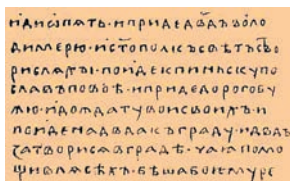 идисѡпѧть·ипридедв҃дъволо
димерю·ист҃ополкъсвѣтъство
рислѧхꙑ·поидекпиньскупо
славъповоѣ·ипридедорогобу
жю·идождатувоисвоихъ·и
поиденадв҃дакъграду·идв҃дъ
затворисѧвградѣ·чаꙗпомо
щивлѧсѣхъ·бѣшабоємуре